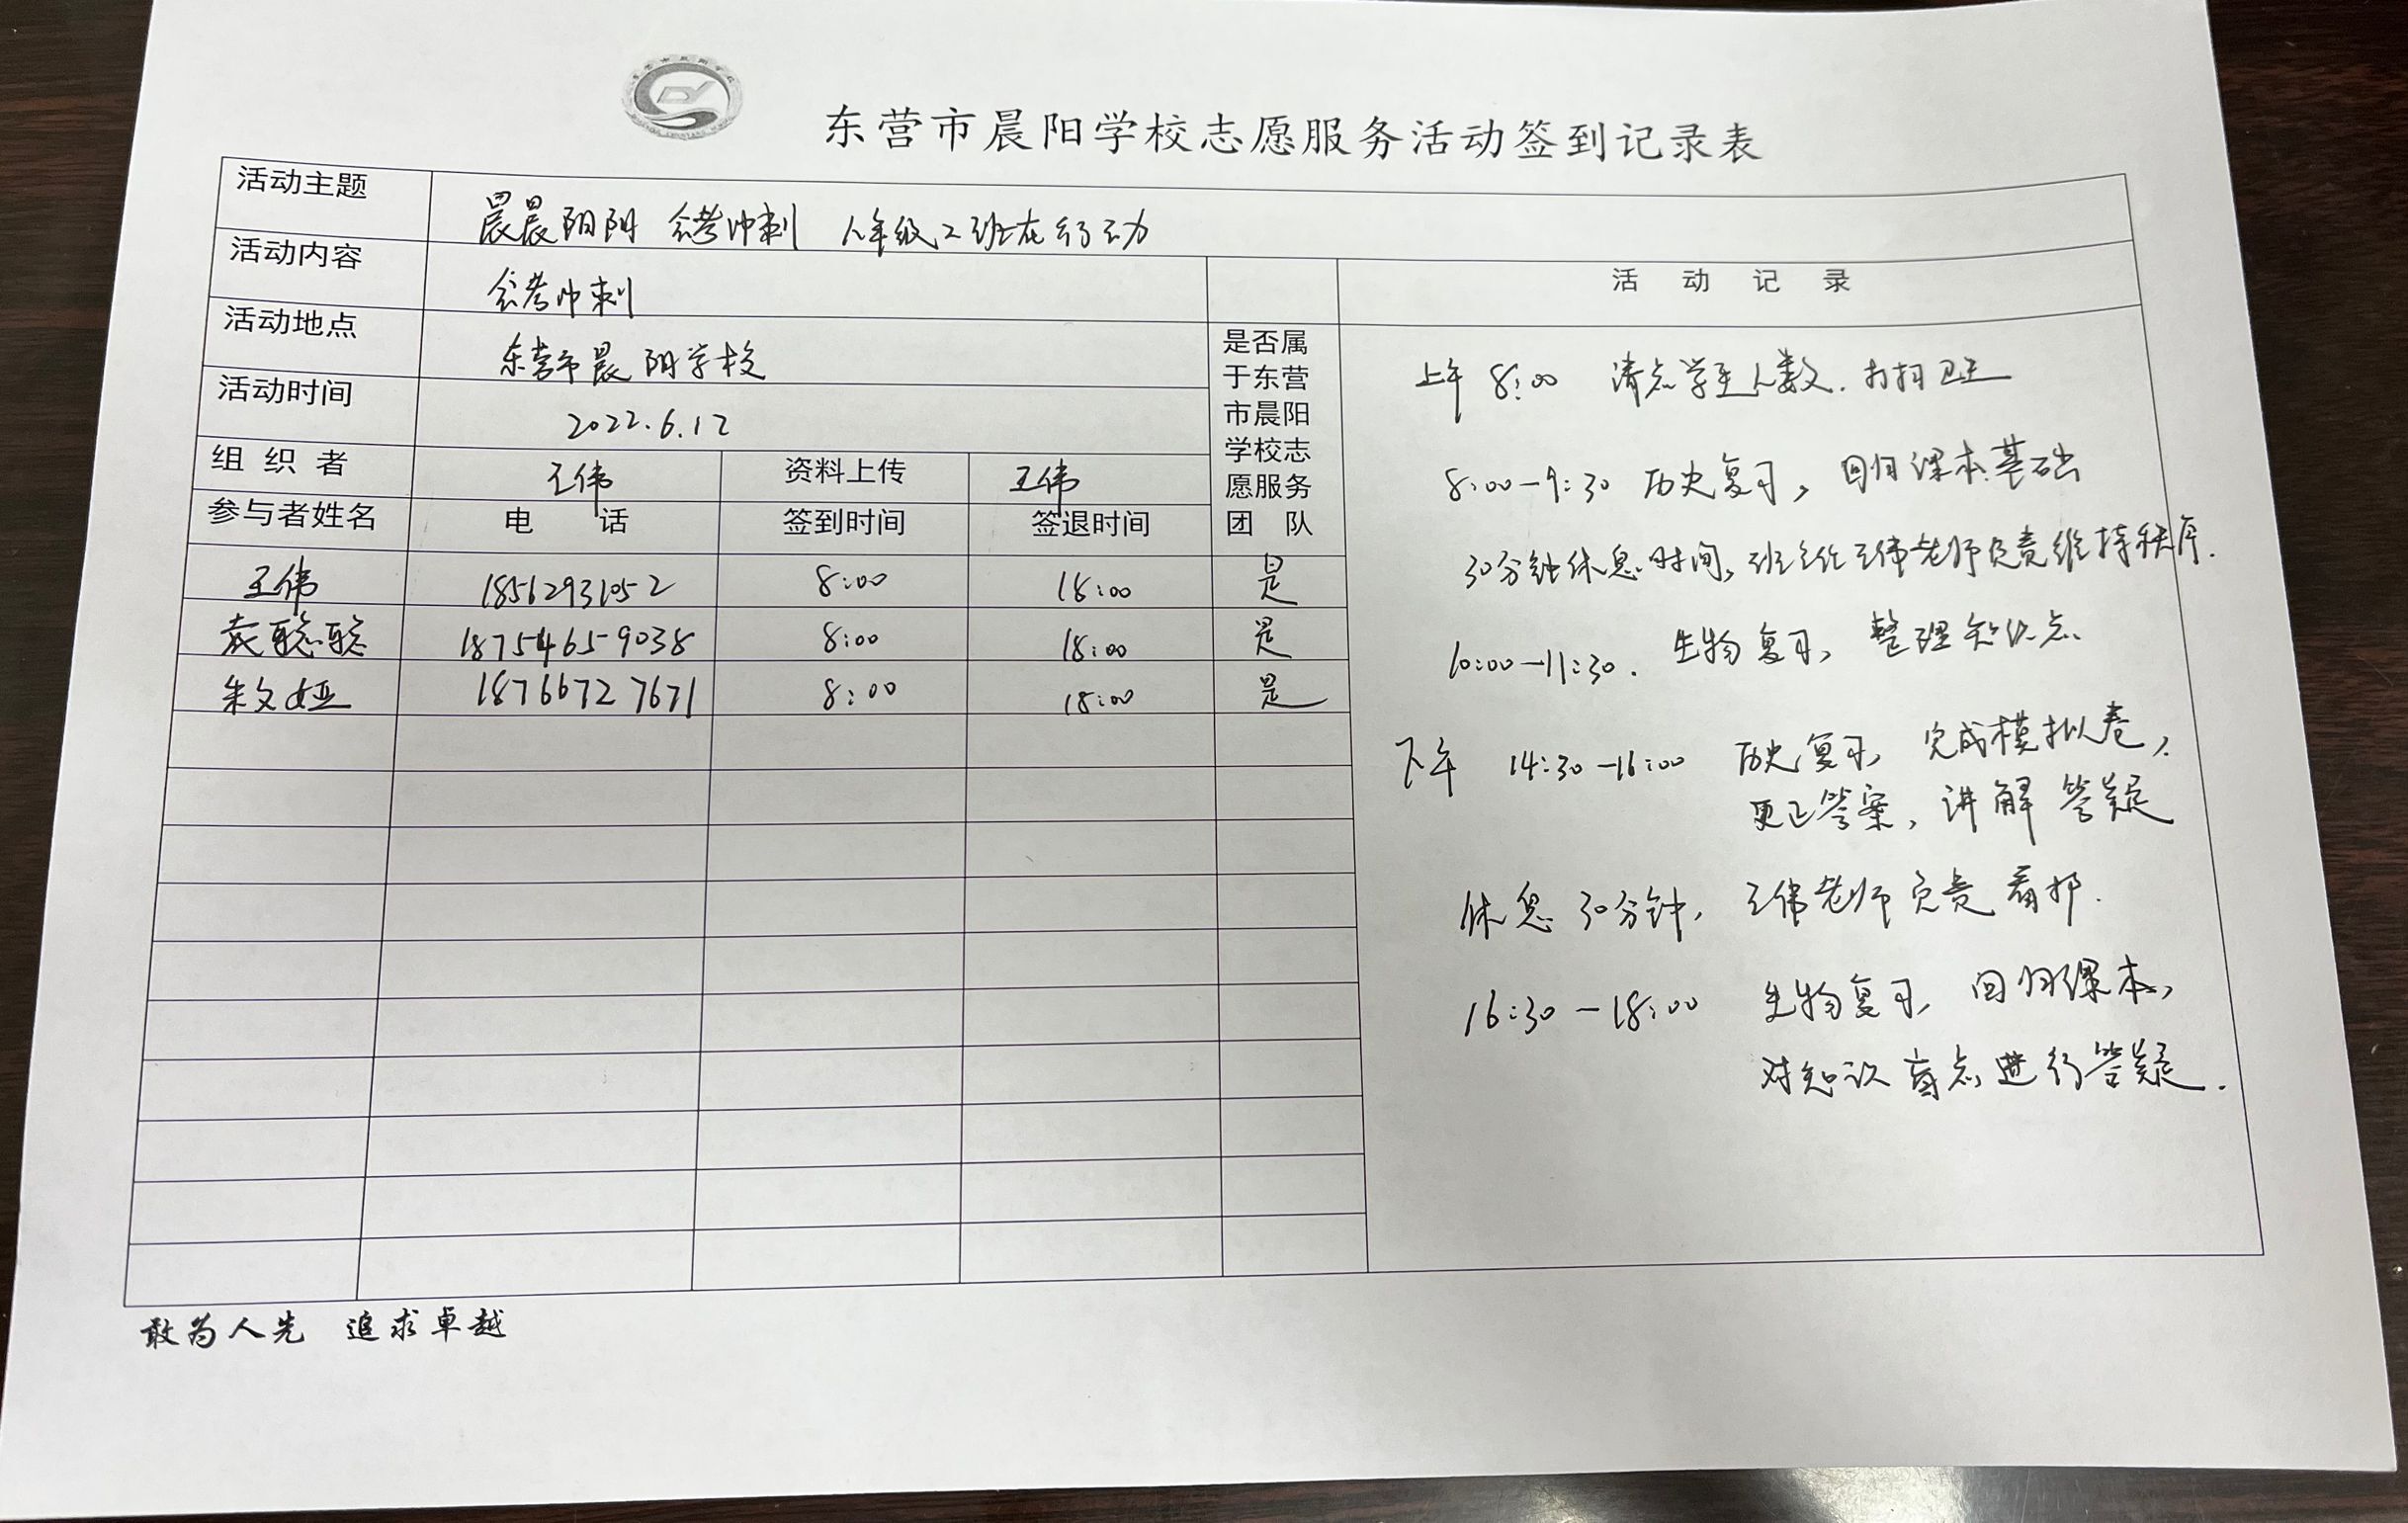 东营市晨阳学校志愿服务活动签到记录表
活动主题 晨晨阳阳 会考冲刺 八年级2班在行动
活动内容 会考冲刺
活动地点 东营市晨阳学校
活动时间 2022.6.12
组织者 王伟 资料上传 王伟
参与者姓名 电话 签到时间 签退时间
是否属
于东营
市晨阳
学校志
愿服务
团队
王伟 18562931052 8:00 18:00 是
袁聪聪 18754659038 8:00 18:00 是
朱文娅 18766727671 8:00 18:00 是
活动记录
上午 8:00 清点学生人数.打扫卫生
8:00-9:30 历史复习,回归课本基础
30分钟休息时间,班主任王伟老师负责维持秩序.
10:00-11:30. 生物复习,整理知识点.
下午 14:30-16:00 历史复习,完成模拟卷,
更正答案,讲解答疑
休息30分钟,王伟老师负责看护.
16:30-18:00 生物复习,回归课本,
对知识盲点进行答疑.
敢为人先 追求卓越